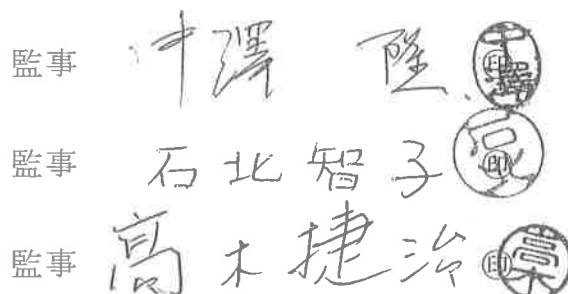 監事 中澤 隆 ㊞
監事 石北智子 ㊞
監事 高木捷治 ㊞